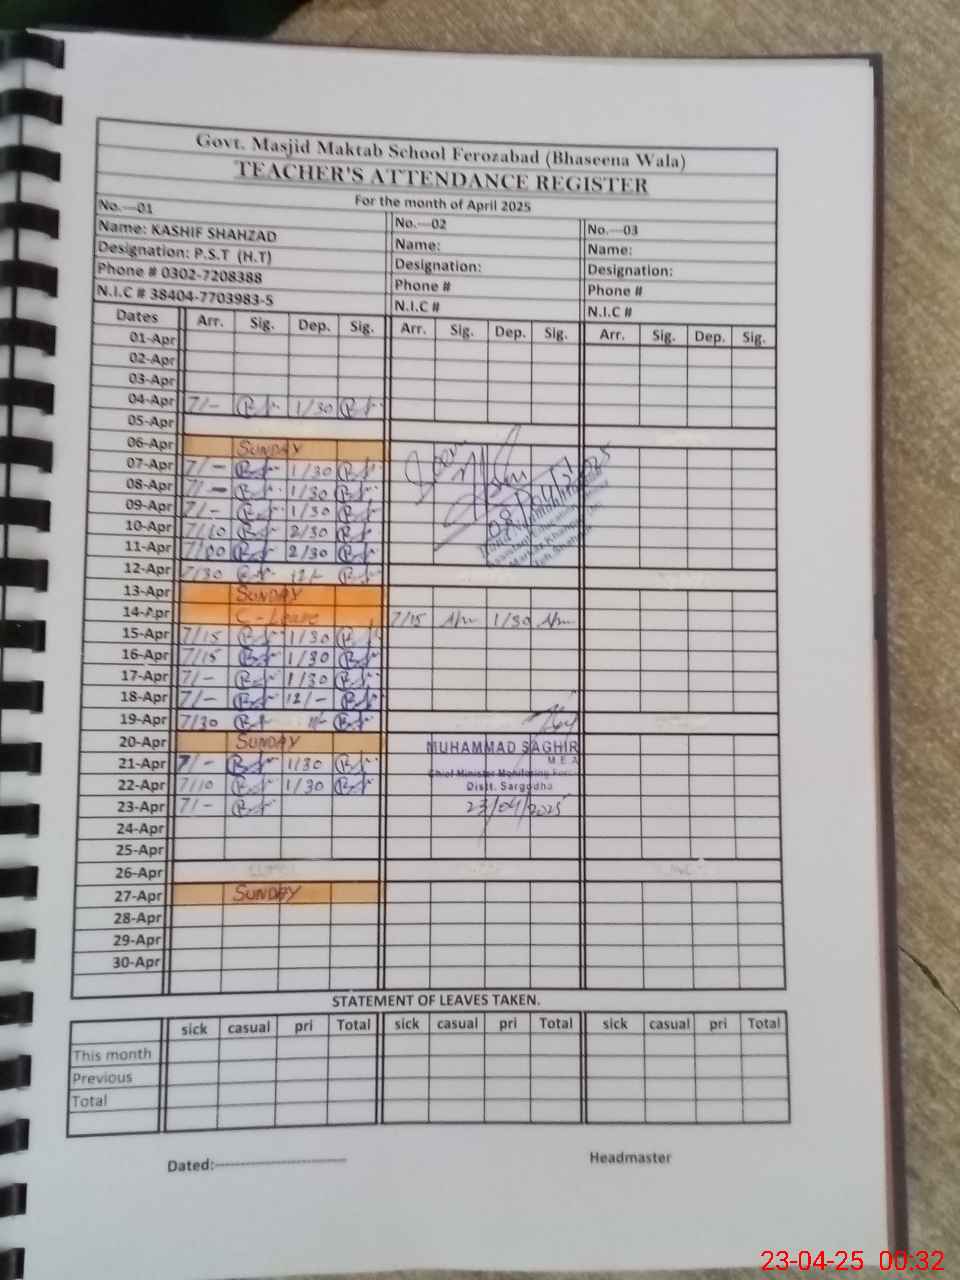 Govt. Masjid Maktab School Ferozabad (Bhaseena Wala)
TEACHER'S ATTENDANCE REGISTER
For the month of April 2025
No.---01 No.---02 No.---03
Name: KASHIF SHAHZAD Name: Name:
Designation: P.S.T (H.T) Designation: Designation:
Phone # 0302-7208388 Phone # Phone #
N.I.C # 38404-7703983-5 N.I.C # N.I.C #
Dates Arr. Sig. Dep. Sig. Arr. Sig. Dep. Sig. Arr. Sig. Dep. Sig.
01-Apr
02-Apr
03-Apr
04-Apr 7/- 1/30
05-Apr
06-Apr SUNDAY
07-Apr 7/- 1/30
08-Apr 7/- 1/30
09-Apr 7/- 1/30
10-Apr 7/10 2/30
11-Apr 7/00 2/30
12-Apr 7/30 12/-
13-Apr SUNDAY
14-Apr C-Leave 7/15 1/30
15-Apr 7/15 1/30
16-Apr 7/15 1/30
17-Apr 7/- 1/30
18-Apr 7/- 12/-
19-Apr 7/30 11/-
20-Apr SUNDAY MUHAMMAD SAGHIR
M.E.A
21-Apr 7/- 1/30 Chief Minister Monitoring Force
22-Apr 7/10 1/30 Distt. Sargodha
23-Apr 7/- 23/04/2025
24-Apr
25-Apr
26-Apr
27-Apr SUNDAY
28-Apr
29-Apr
30-Apr
STATEMENT OF LEAVES TAKEN.
sick casual pri Total sick casual pri Total sick casual pri Total
This month
Previous
Total
Dated:-----------------------------
Headmaster
23-04-25 00:32